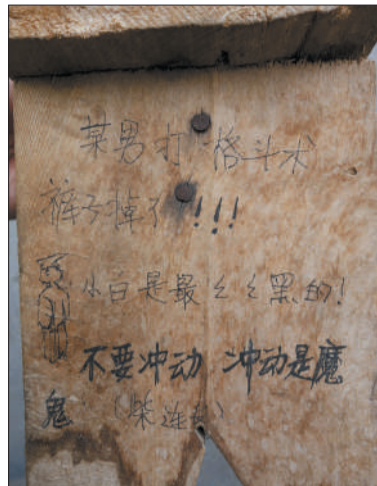 某男打格斗术
裤子掉了!!!
小白是最ㄥㄥ黑的!
不要冲动 冲动是魔
鬼 (柴连